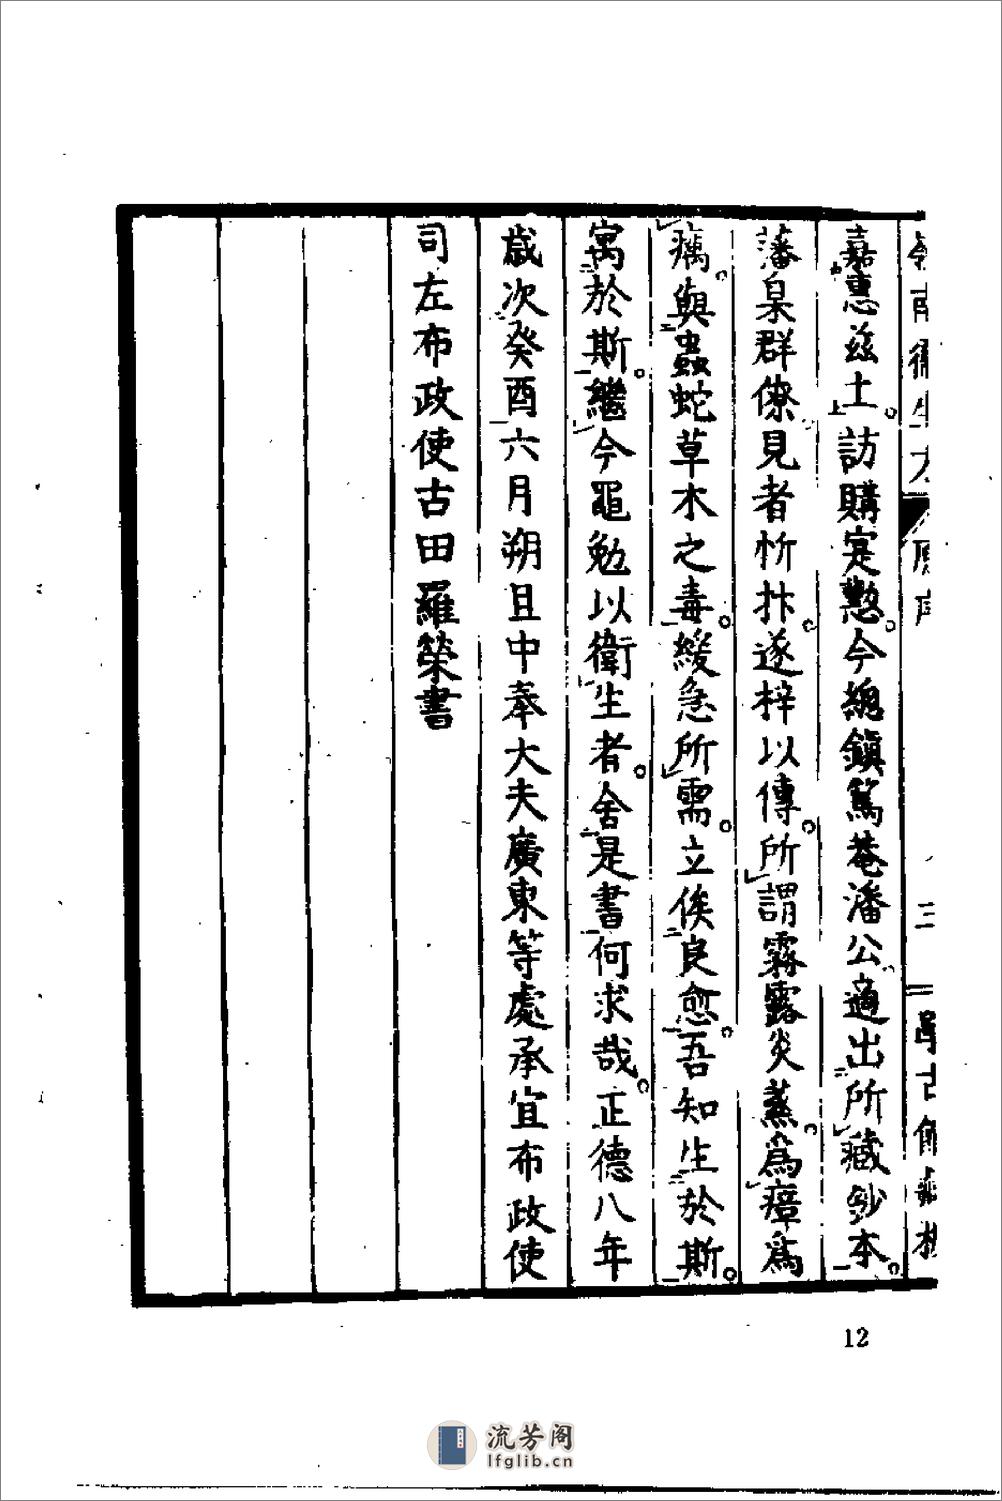 嘉惠茲土。訪購寔懃。今總鎮篤菴潘公適出所藏鈔本。
藩臬群僚見者忻抃。遂梓以傳。所謂霧露炎蒸。爲瘴爲
癘。與蟲蛇草木之毒。緩急所需。立俟良愈。吾知生於斯。
寓於斯。繼今黽勉以衛生者。舍是書何求哉。正德八年
歲次癸酉六月朔旦中奉大夫廣東等處承宣布政使
司左布政使古田羅榮書
12
流芳阁
lfglib.cn